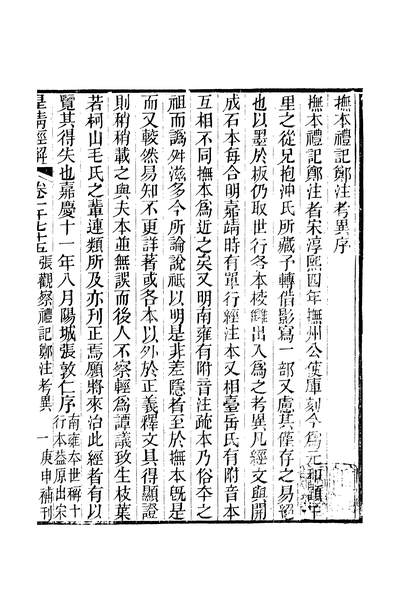 撫本禮記鄭注考異序
撫本禮記鄭注者宋淳熙四年撫州公使庫刻今為元和顧千
里之從兄抱沖氏所藏予轉借影寫一部又慮其僅存之易絕
也以墨於板仍取世行各本校讎出入為之考異凡經文與開
成石本每合明嘉靖時有單行經注本又相臺岳氏有附音本
互相不同撫本為近之矣又明南雍有附音注疏本乃俗本之
祖而譌舛滋多今所論說祗以明是非差隱者至於撫本旣是
而又較然易知不更詳著或各本以外於正義釋文具得顯證
則稍稍載之與夫本並無誤而後人不察輕為譚議致生枝葉
若柯山毛氏之輩連類所及亦刊正焉願將來治此經者有以
覽其得失也嘉慶十一年八月陽城張敦仁序
南雍本世稱十
行本益原出宋
皇清經解
卷一千七十五張觀察禮記鄭注考異
一
庚申補刊